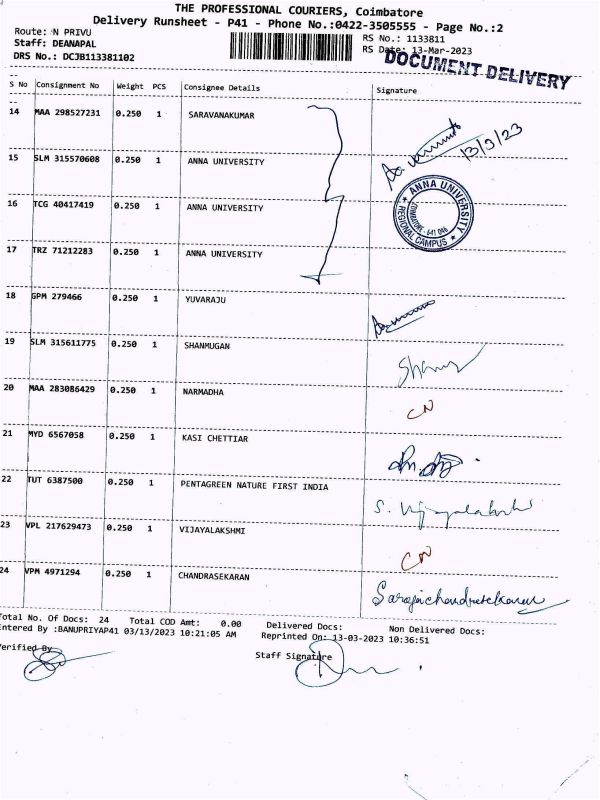 THE PROFESSIONAL COURIERS, Coimbatore
Delivery Runsheet - P41 - Phone No.:0422-3505555 - Page No.:2
Route: N PRIVU
RS No.: 1133811
Staff: DEANAPAL
RS Date: 13-Mar-2023
DRS No.: DCJB113381102
DOCUMENT DELIVERY
S No Consignment No Weight PCS Consignee Details Signature
14 MAA 298527231 0.250 1 SARAVANAKUMAR
13/3/23
15 SLM 315570608 0.250 1 ANNA UNIVERSITY
ANNA UNIVERSITY
COIMBATORE - 641 046
REGIONAL CAMPUS
16 TCG 40417419 0.250 1 ANNA UNIVERSITY
17 TRZ 71212283 0.250 1 ANNA UNIVERSITY
18 GPM 279466 0.250 1 YUVARAJU
19 SLM 315611775 0.250 1 SHANMUGAN
20 MAA 283086429 0.250 1 NARMADHA CN
21 MYD 6567058 0.250 1 KASI CHETTIAR
22 TUT 6387500 0.250 1 PENTAGREEN NATURE FIRST INDIA S. Vijayalakshmi
23 VPL 217629473 0.250 1 VIJAYALAKSHMI CN
24 VPM 4971294 0.250 1 CHANDRASEKARAN Sarojachandrasekaran
Total No. Of Docs: 24 Total COD Amt: 0.00 Delivered Docs: Non Delivered Docs:
Entered By :BANUPRIYAP41 03/13/2023 10:21:05 AM Reprinted On: 13-03-2023 10:36:51
Verified By
Staff Signature